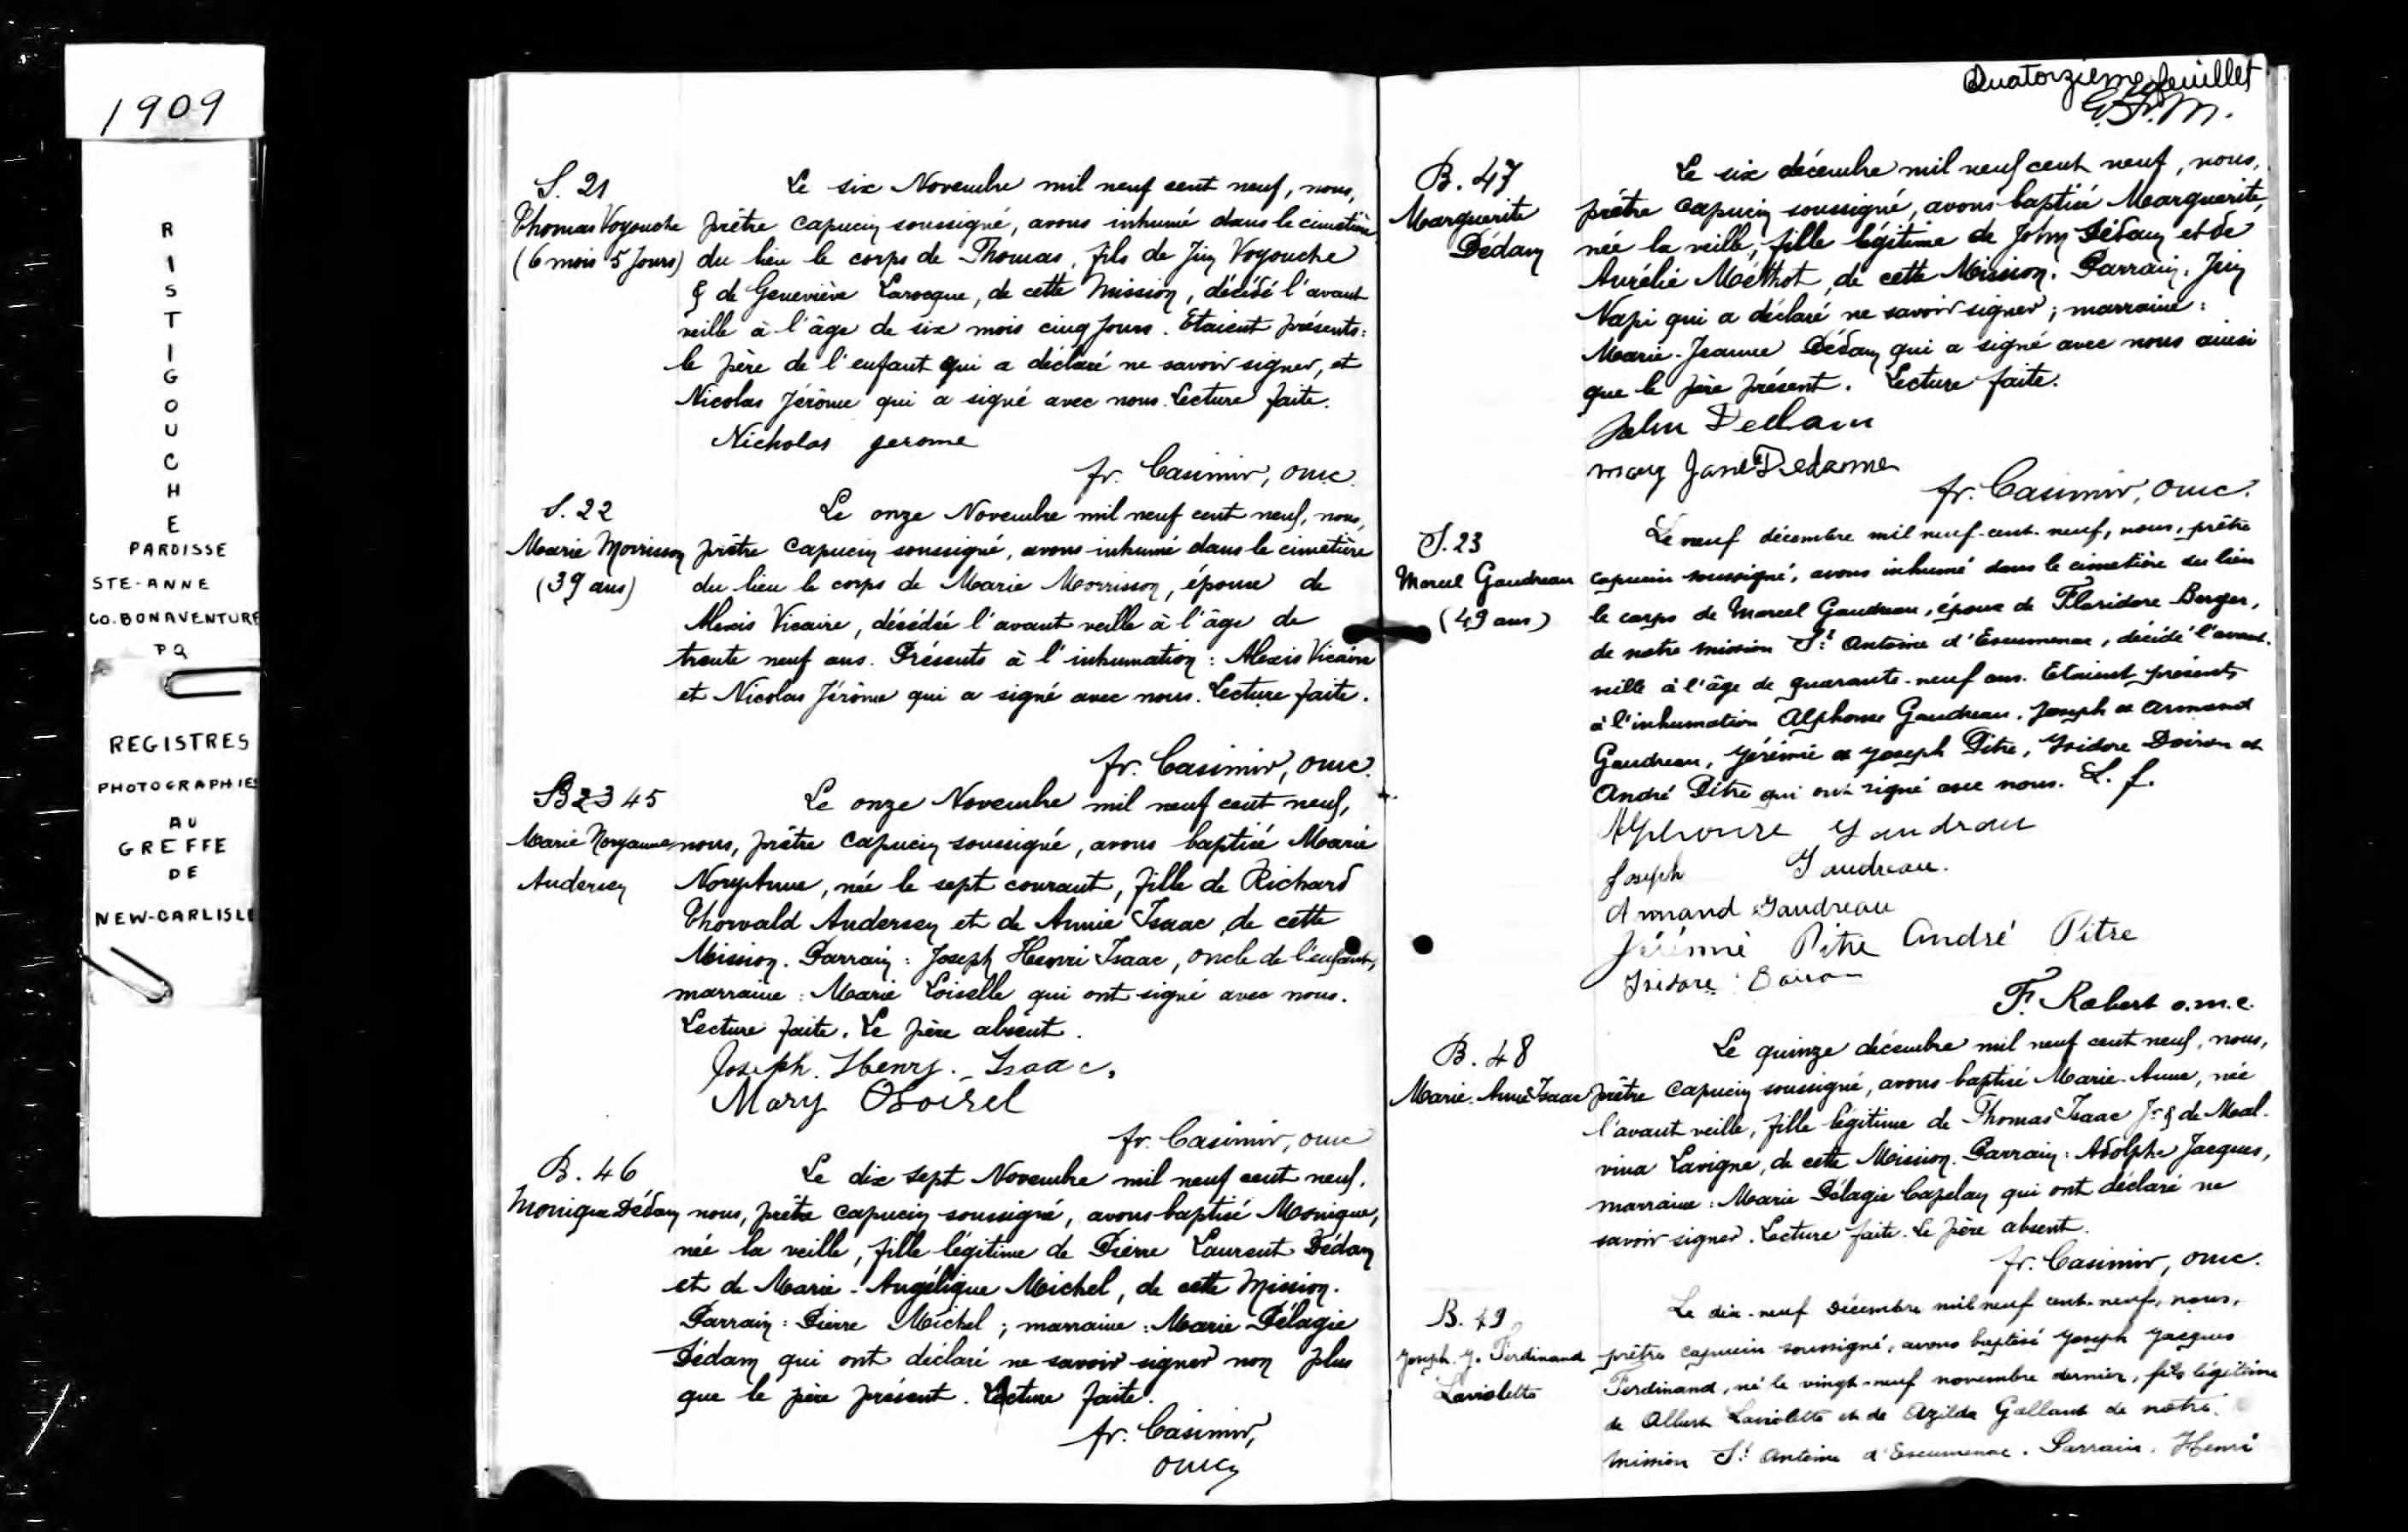 1909
RISTIGOUCHE
PAROISSE
STE-ANNE
CO. BONAVENTURE
PQ
REGISTRES
PHOTOGRAPHIES
AU
GREFFE
DE
NEW-CARLISLE
S. 21
Thomas Voyouche
(6 mois 5 jours)
Le six Novembre mil neuf cent neuf, nous,
prêtre capucin soussigné, avons inhumé dans le cimetière
du lieu le corps de Thomas, fils de Jim Voyouche
& de Geneviève Larocque, de cette Mission, décédé l'avant
veille à l'âge de six mois cinq jours. Etaient présents:
le père de l'enfant qui a déclaré ne savoir signer, et
Nicolas Jérôme qui a signé avec nous. Lecture faite.
Nicholas Jerome
fr. Casimir, omc.
S. 22
Marie Morrison
(39 ans)
Le onze Novembre mil neuf cent neuf, nous,
prêtre capucin soussigné, avons inhumé dans le cimetière
du lieu le corps de Marie Morrison, épouse de
Alexis Vicaire, décédée l'avant veille à l'âge de
trente neuf ans. Présents à l'inhumation: Alexis Vicaire
et Nicolas Jérôme qui a signé avec nous. Lecture faite.
fr. Casimir, omc.
B 23 45
Marie Noryanne
Andersen
Le onze Novembre mil neuf cent neuf,
nous, prêtre capucin soussigné, avons baptisé Marie
NoryAnne, née le sept courant, fille de Richard
Thorvald Andersen et de Annie Isaac, de cette
Mission. Parrain: Joseph Henri Isaac, oncle de l'enfant,
marraine: Marie Loiselle qui ont signé avec nous.
Lecture faite. Le père absent.
Joseph. Henry. Isaac.
Mary
fr. Casimir, omc
B. 46
Monique Dédam
Le dix sept Novembre mil neuf cent neuf,
nous, prêtre capucin soussigné, avons baptisé Monique,
née la veille, fille légitime de Pierre Laurent Dédam
et de Marie-Angélique Michel, de cette Mission.
Parrain: Pierre Michel; marraine: Marie Pélagie
Dédam qui ont déclaré ne savoir signer non plus
que le père présent. Lecture faite.
fr. Casimir,
omc
Quatorzième feuillet
B. 47
Marguerite
Dédam
Le six décembre mil neuf cent neuf, nous,
prêtre capucin soussigné, avons baptisé Marguerite,
née la veille, fille légitime de John Dédam et de
Aurélie Methot, de cette Mission. Parrain: Jim
Napi qui a déclaré ne savoir signer; marraine:
Marie-Jeanne Dédam qui a signé avec nous ainsi
que le père présent. Lecture faite.
John Dedam
mary Jane Dedame
fr. Casimir, omc.
S. 23
Marcel Gaudreau
(49 ans)
Le neuf décembre mil neuf-cent-neuf, nous, prêtre
capucin soussigné, avons inhumé dans le cimetière du lieu
le corps de Marcel Gaudreau, époux de Floridore Berger,
de notre mission St Antoine d'Escuminac, décédé l'avant-
veille à l'âge de quarante-neuf ans. Etaient présents
à l'inhumation Alphonse Gaudreau, Joseph et Armand
Gaudreau, Jérémie et Joseph Pitre, Isidore Doiron et
André Pitre qui ont signé avec nous. L. f.
Alphonse Gaudreau
Joseph Gaudreau.
Armand Gaudreau
Jérémie Pitre André Pitre
Isidore Doiron
F. Robert o.m.c.
B. 48
Marie-Anne Isaac
Le quinze décembre mil neuf cent neuf, nous,
prêtre capucin soussigné, avons baptisé Marie-Anne, née
l'avant veille, fille légitime de Thomas Isaac Jr & de Mal-
vina Lavigne, de cette Mission. Parrain: Adolphe Jacques,
marraine: Marie Pélagie Capelan qui ont déclaré ne
savoir signer. Lecture faite. Le père absent.
fr. Casimir, omc.
B. 49
Joseph. J. Ferdinand
Laviolette
Le dix-neuf Décembre mil neuf cent-neuf, nous,
prêtre capucin soussigné, avons baptisé Joseph Jacques
Ferdinand, né le vingt-neuf novembre dernier, fils légitime
de Albert Laviolette et de Azilda Gallant de notre
mission St Antoine d'Escuminac. Parrain. Henri